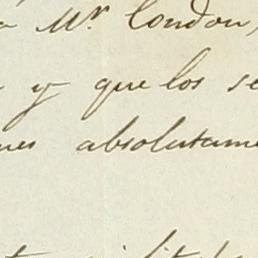 a Mr. London,
y que los se
ues absolutame